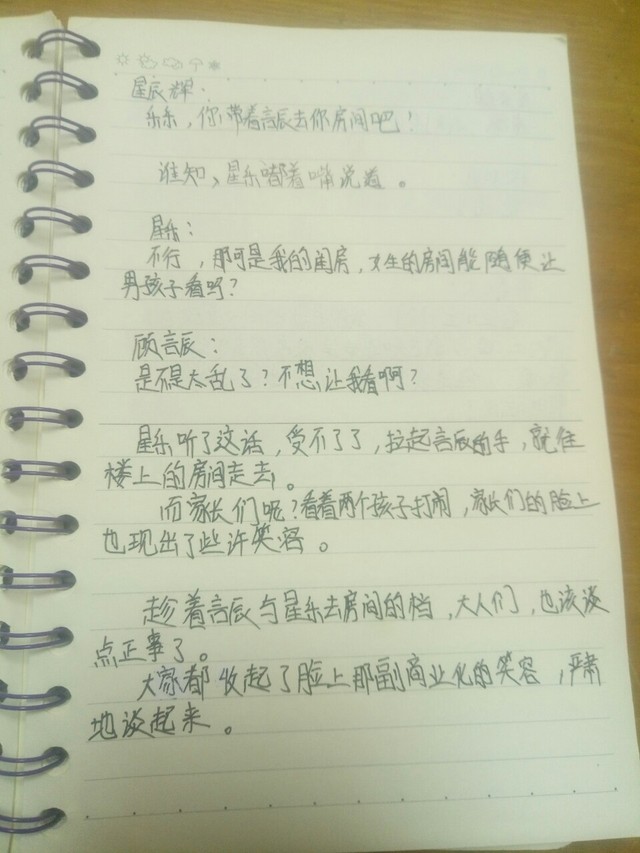 星辰辉:
乐乐,你带着言辰去你房间吧!
谁知,星乐嘟着嘴说道。
星乐:
不行,那可是我的闺房,女生的房间能随便让
男孩子看吗?
顾言辰:
是不是太乱了?不想让我看啊?
星乐听了这话,受不了了,拉起言辰的手,就往
楼上的房间走去。
而家长们呢?看着两个孩子打闹,家长们的脸上
也现出了些许笑容。
趁着言辰与星乐去房间的档,大人们,也该谈
点正事了。
大家都收起了脸上那副商业化的笑容,严肃
地谈起来。